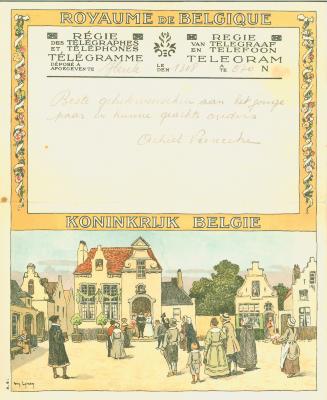 ROYAUME DE BELGIQUE
RÉGIE
DES TÉLÉGRAPHES
ET TÉLÉPHONES
TÉLÉGRAMME
DÉPOSÉ À
AFGEGEVEN TE
LE
DEN
REGIE
VAN TELEGRAAF
EN TELEFOON
TELEGRAM
À
TE
N
Beste gelukwenschen aan het jonge
paar en hunne geachte ouders
Achiel
KONINKRIJK BELGIE